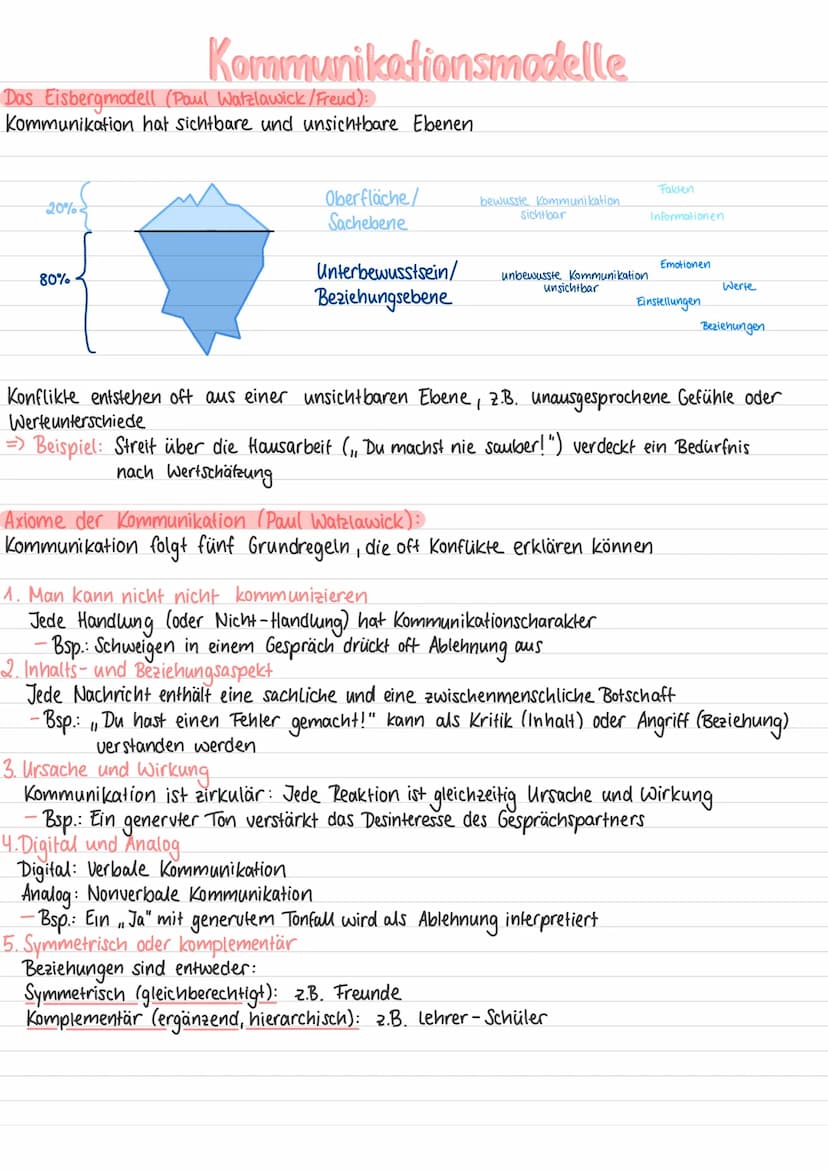 Kommunikationsmodelle
Das Eisbergmodell (Paul Watzlawick/Freud):
Kommunikation hat sichtbare und unsichtbare Ebenen
20%
Oberfläche/
Sachebene
bewusste Kommunikation
sichtbar
Fakten
Informationen
80%
Unterbewusstsein/
Beziehungsebene
unbewusste Kommunikation
unsichtbar
Emotionen
Werte
Einstellungen
Beziehungen
Konflikte entstehen oft aus einer unsichtbaren Ebene, z.B. unausgesprochene Gefühle oder
Werteunterschiede
=> Beispiel: Streit über die Hausarbeit („Du machst nie sauber!") verdeckt ein Bedürfnis
nach Wertschätzung
Axiome der Kommunikation (Paul Watzlawick):
Kommunikation folgt fünf Grundregeln, die oft Konflikte erklären können
1. Man kann nicht nicht kommunizieren
Jede Handlung (oder Nicht-Handlung) hat Kommunikationscharakter
- Bsp.: Schweigen in einem Gespräch drückt oft Ablehnung aus
2. Inhalts- und Beziehungsaspekt
Jede Nachricht enthält eine sachliche und eine zwischenmenschliche Botschaft
- Bsp.: „Du hast einen Fehler gemacht!" kann als Kritik (Inhalt) oder Angriff (Beziehung)
verstanden werden
3. Ursache und Wirkung
Kommunikation ist zirkulär: Jede Reaktion ist gleichzeitig Ursache und Wirkung
- Bsp.: Ein genervter Ton verstärkt das Desinteresse des Gesprächspartners
4. Digital und Analog
Digital: Verbale Kommunikation
Analog: Nonverbale Kommunikation
- Bsp.: Ein „Ja" mit genervtem Tonfall wird als Ablehnung interpretiert
5. Symmetrisch oder komplementär
Beziehungen sind entweder:
Symmetrisch (gleichberechtigt): z.B. Freunde
Komplementär (ergänzend, hierarchisch): z.B. Lehrer-Schüler